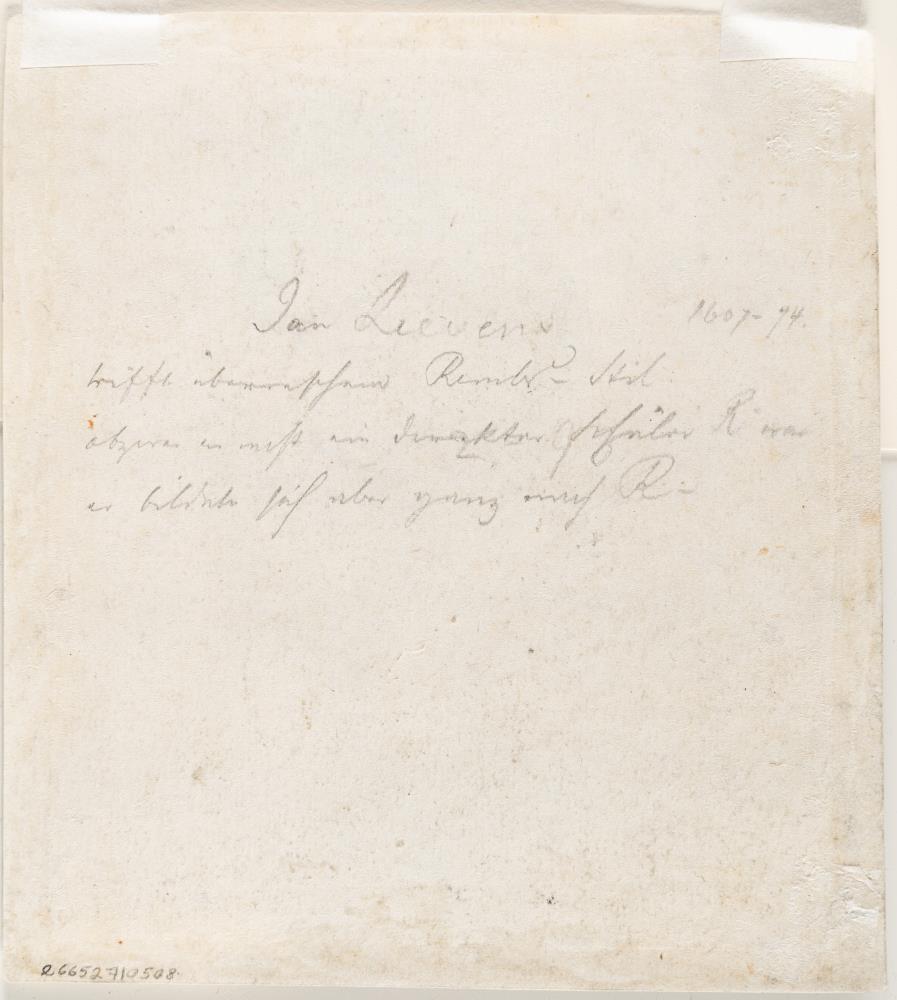 Jan Lievens 1607-74.
trifft überraschend Rembr- Stil
obzwar er nicht ein direkter Schüler R war
er bildete sich aber ganz nach R-
26652710508